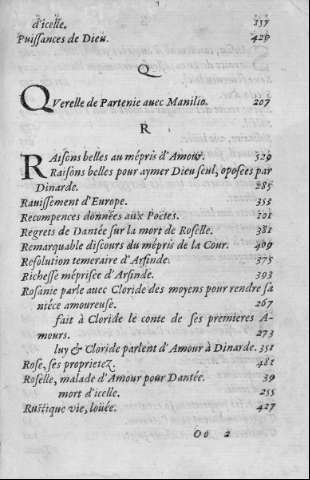 d'icelle. 157
Puissances de Dieu. 420
Q
QVerelle de Partenie auec Manilio. 207
R
RAisons belles au mépris d'Amour. 329
Raisons belles pour aymer Dieu seul, oposées par
Dinarde. 285
Rauissement d'Europe. 353
Recompences données aux Poëtes. 101
Regrets de Dantée sur la mort de Roselle. 381
Remarquable discours du mépris de la Cour. 409
Resolution temeraire d'Arsinde. 375
Richesse méprisée d'Arsinde. 393
Rosanie parle auec Cloride des moyens pour rendre sa
niéce amoureuse. 267
fait à Cloride le conte de ses premieres A-
mours. 273
luy & Cloride parlent d'Amour à Dinarde. 351
Rose, ses proprietez. 481
Roselle, malade d'Amour pour Dantée. 39
mort d'icelle. 255
Rustique vie, loüée. 427
Oo 2